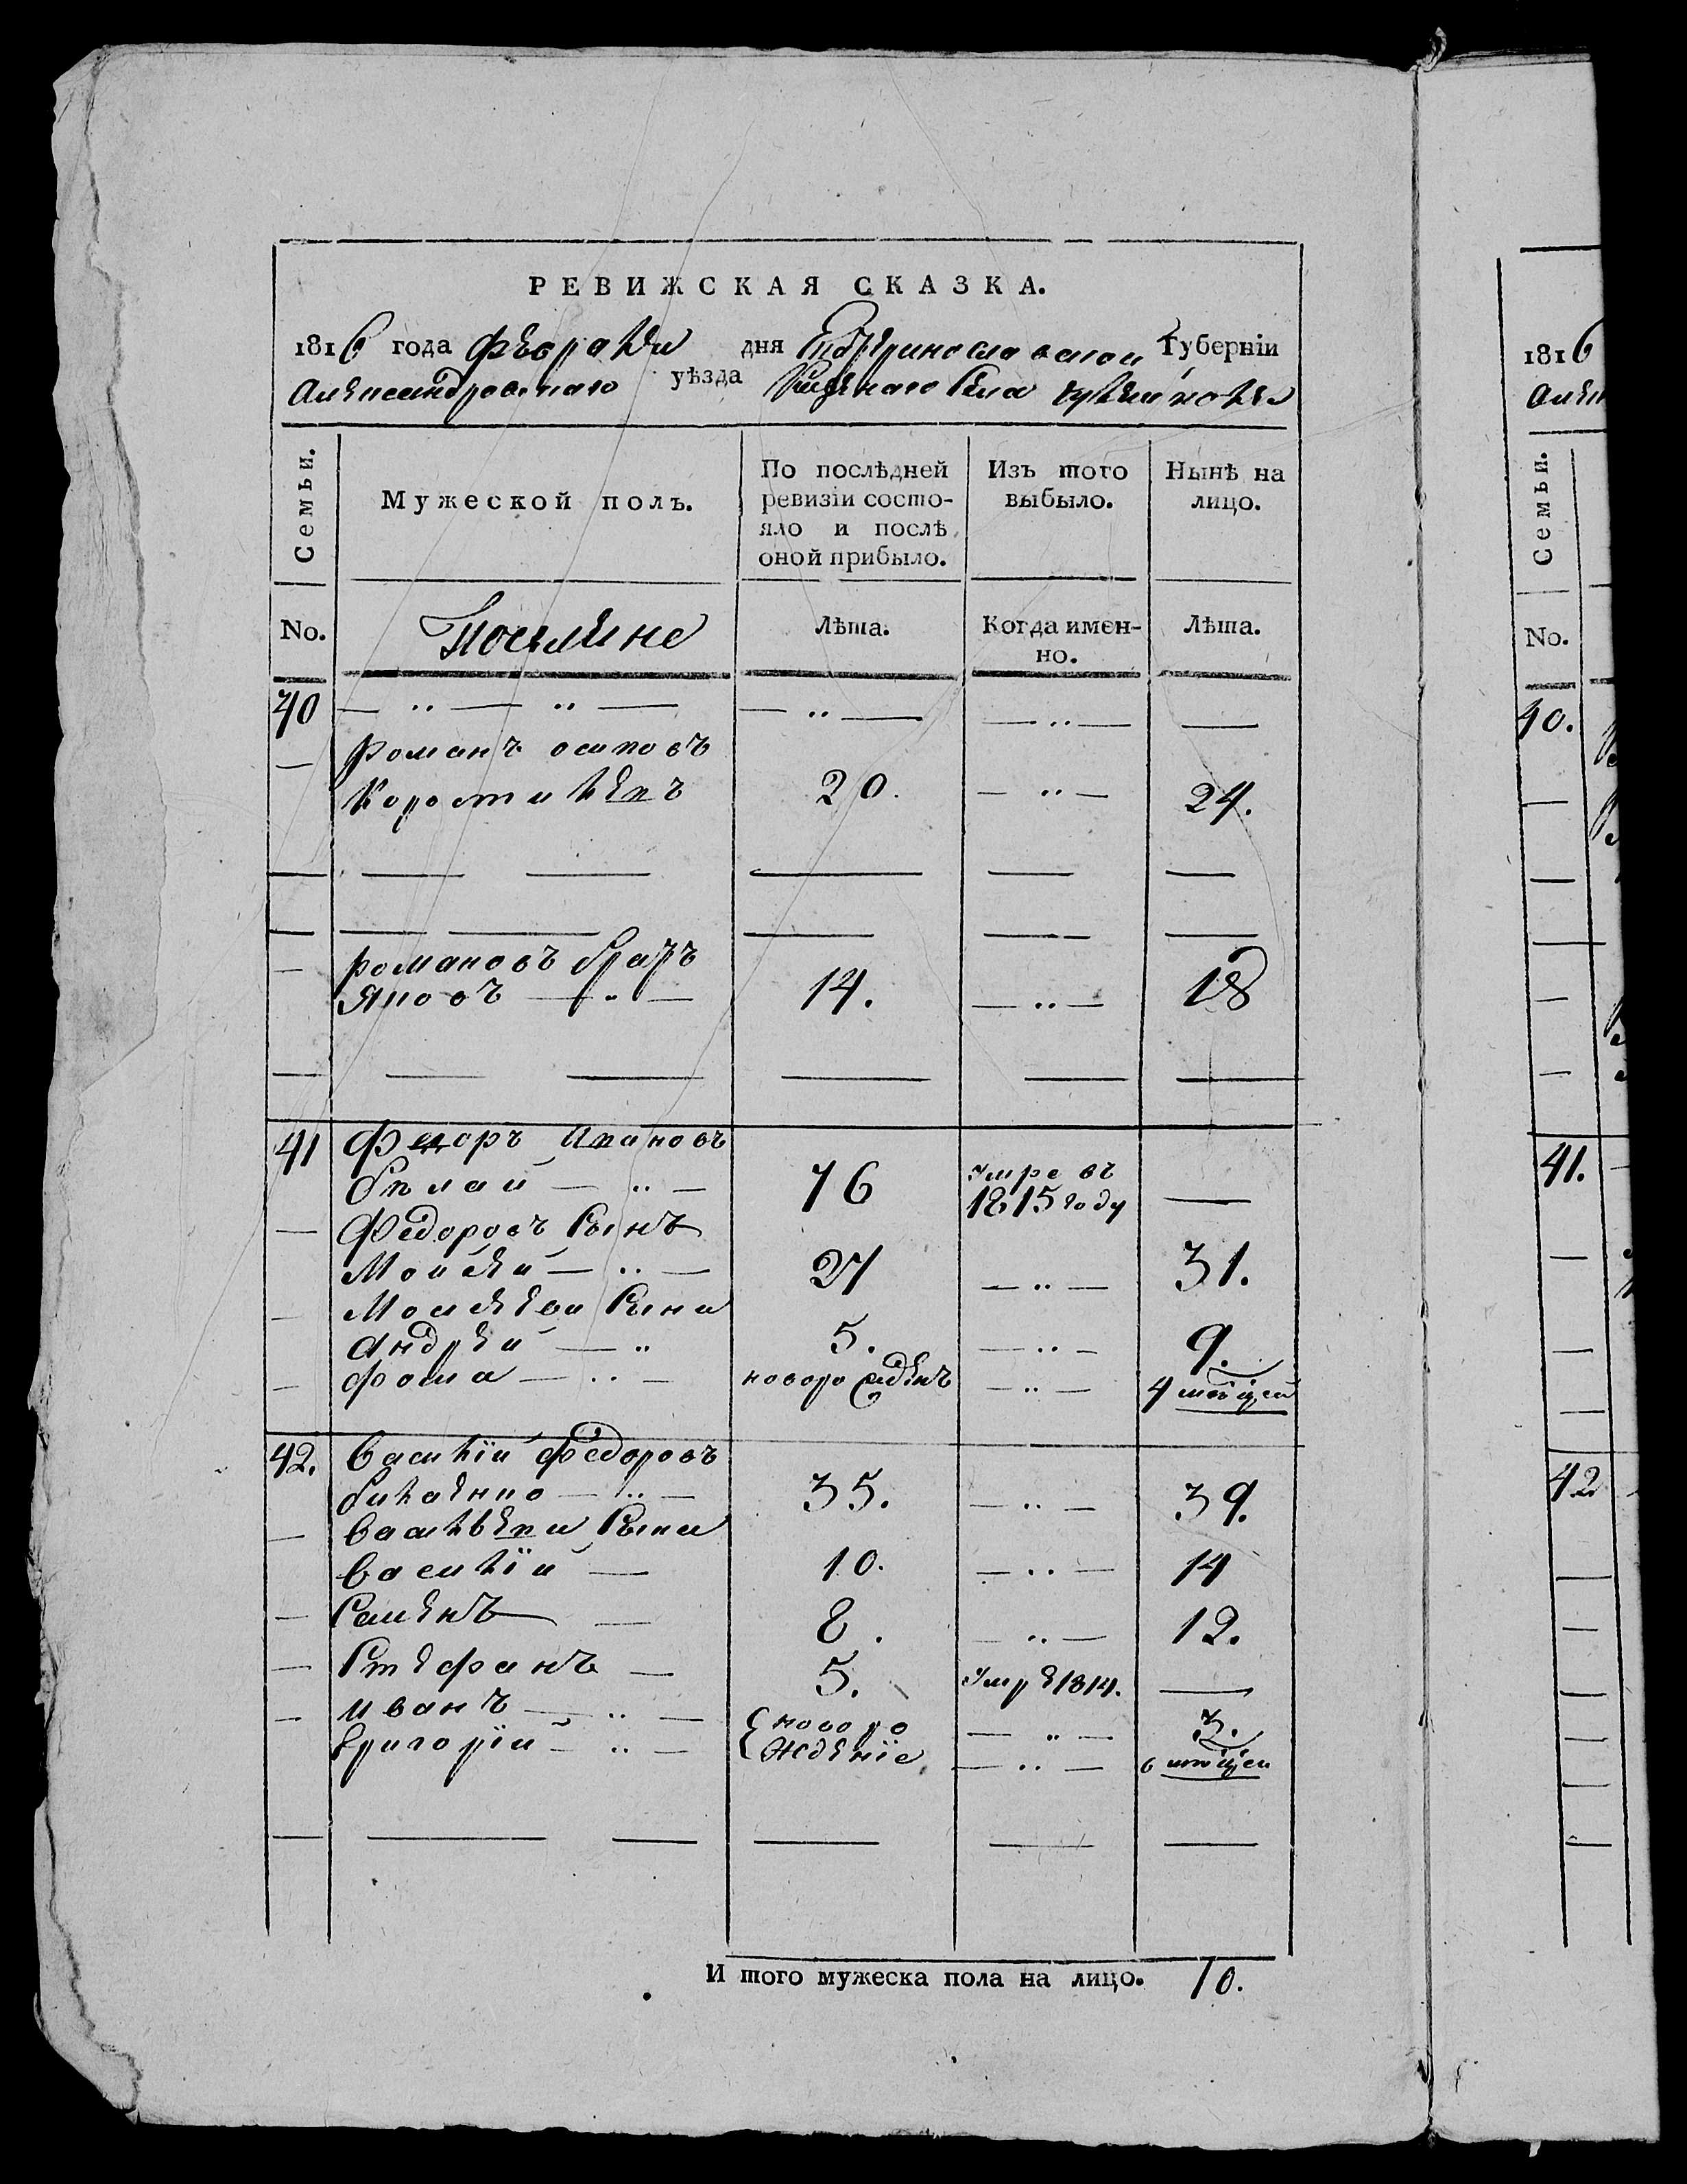 РЕВИЖСКАЯ СКАЗКА.
1816 года Февраля дня Екатеринославской Губерніи
Александровскаго уѣзда Казеннаго Села
Семьи.
Мужеской полъ.
По послѣдней ревизіи состояло и послѣ оной прибыло.
Изъ того выбыло.
Нынѣ на лицо.
No.
Поселяне
Лѣта.
Когда именно.
Лѣта.
40 — „ — „ — — „ — — „ — —
— романъ осиповъ
Коростилекъ 20. — „ — 24.
— романовъ братъ
яковъ — „ — 14. — „ — 18
41 Федоръ Ивановъ
— „ — 76 Умре въ 1815 году —
— Федоровъ Сынъ
Мойсей — „ — 27 — „ — 31.
— Мойсеева Сыни
Андрей — „ 5. — „ — 9.
— фома — „ — новорожденъ — „ — 4 мѣсяцей
42. василій Федоровъ
— „ — 35. — „ — 39.
— васильева Сыни
василій — 10. — „ — 14
— Семенъ — 8. — „ — 12.
— Стефанъ — 5. Умре 1814. —
— иванъ — „ — новоро — „ — 3.
григорій — „ — жденіе — „ — 6 мѣсяцей
И того мужеска пола на лицо. 10.
1816
Алек
Семьи.
No.
40.
41.
42